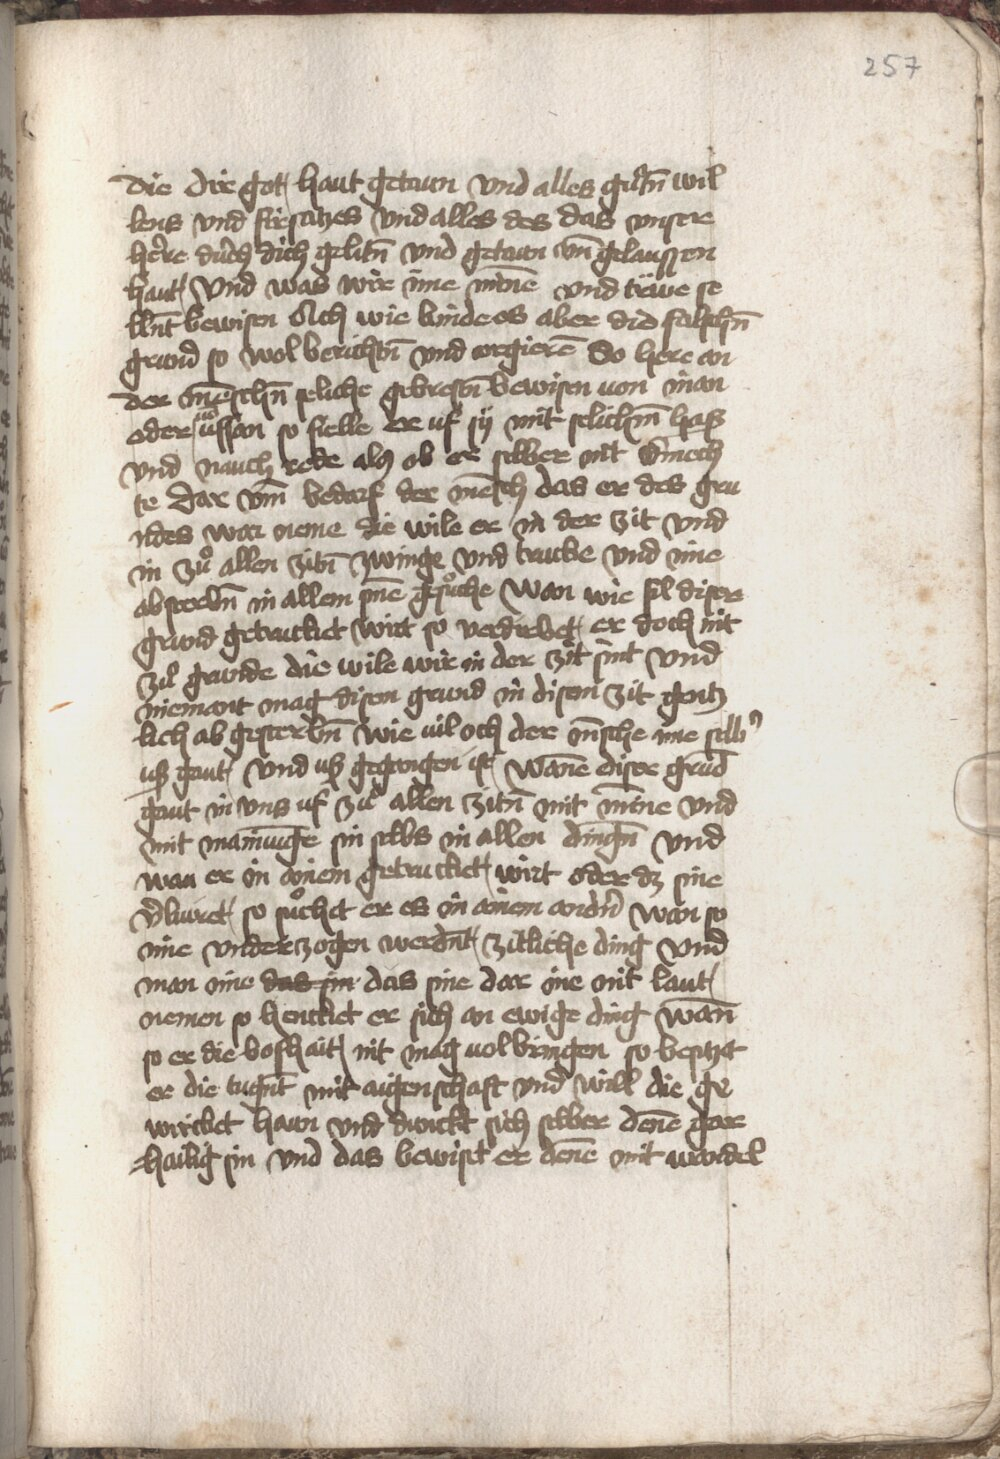 257
die dir got haut getaun vnd alles gůtn̄ wil
lens vnd fürsatzes vnd alles des das vnsere
here durch dich gelitn̄ vnd getaun vn̄ gelaussen
haut vnd was wir ime min̄e vnd trüwe se
llnt bewisen Ach wie kinde es aber dis falschn̄
grund so wol berichtn̄ vnd regierē So here an
der mēschn̄ seliche gebrestn̄ bewisen von man
oder so fielle er uf sÿ mit selichm̄ hass
vnd nauch rede als ob er selber nit v̄mech
te Dar vm̄ bedarf der mēsch das er des gru
ndes war neme die wile er in der zit vnd
in zů allen zitn̄ zwinge vnd trucke vnd ime
absterbn̄ in allem sine gesůche Wan wie fil diser
grund getrucket wirt so verdirbet er doch nit
zů grunde die wile wir in der zit sint vnd
niemant mag disem grund in disem zit gentz
lich ab gesterbn̄ wie vil och der mn̄sche ime selb
uss gaut vnd uss gegangen ist Wan̄e diser grūd
gaut in vns uf zů allen zitn̄ mit min̄e vnd
mit mainūge sin selbs in allen dingn̄ vnd
wan er in ainem getrucket wirt oder dz sine
v̄lüret so sůchet er es in ainem andrn̄ wan so
ime vnderzogen werdn̄t zitliche ding vnd
man ime das sin das sine dar ine nit laut
nemen so hencket er sich an ewige ding Wan̄
so er die boshait nit mag volbringen so besitzet
er die tugn̄t mit aigenschaft vnd will die ge
wircket haun vnd dunckt sich selber den̄e gar
hailig sin vnd das bewiset er den̄e mit